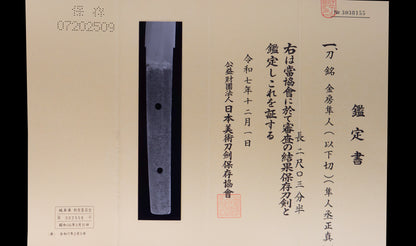 鑑定書
一、刀 銘 金房隼人(以下切)(隼人丞正真)
長 二尺〇三分半
右は當協會に於て審査の結果保存刀剣と
鑑定しこれを証する
令和七年十二月一日
公益財團法人日本美術刀剣保存協會
保存
07202509
№3038155